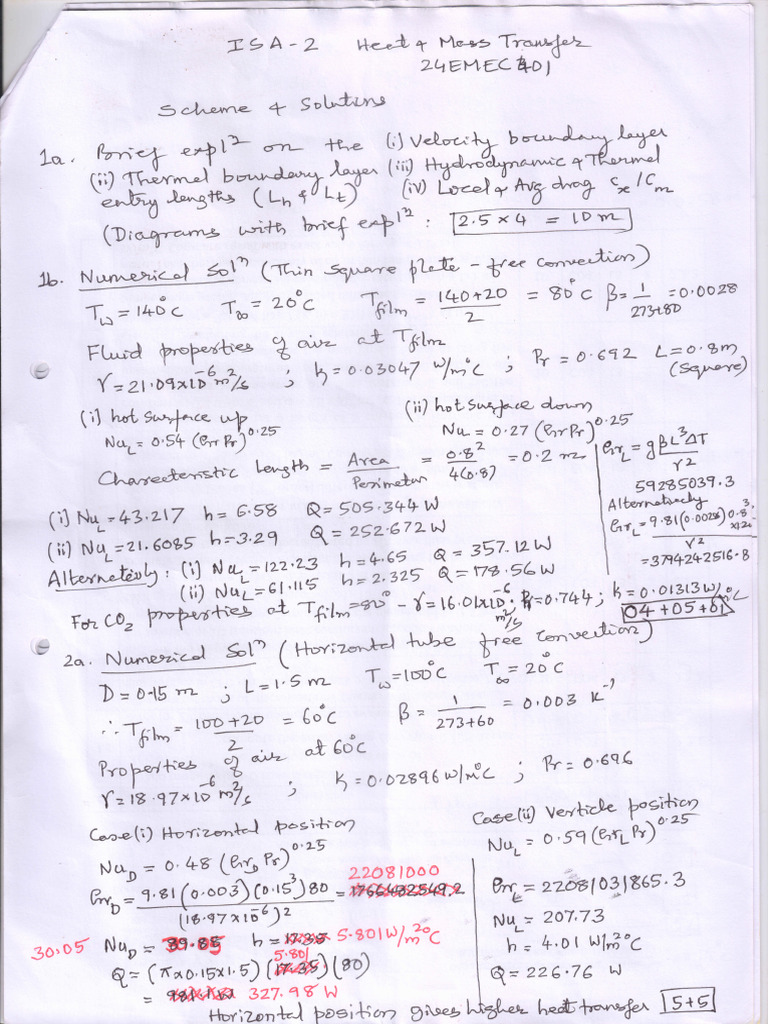 ISA-2 Heat & Mass Transfer
24EMEC401
Scheme & Solutions
1a. Brief expl^n on the (i) Velocity boundary layer
(ii) Thermal boundary layer (iii) Hydrodynamic & Thermal
entry lengths (L_h & L_t) (iv) Local & Avg drag C_x/C_m
(Diagrams with brief expl^n : 2.5 × 4 = 10 m
1b. Numerical Sol^n (Thin Square plate - free convection)
T_w = 140°C T_∞ = 20°C T_film = (140+20)/2 = 80°C β = 1/(273+80) = 0.0028
Fluid properties of air at T_film
γ = 21.09×10^-6 m²/s ; k = 0.03047 W/m°C ; Pr = 0.692 L = 0.8m
(Square)
(i) hot surface up (ii) hot surface down
Nu_L = 0.54 (Gr Pr)^0.25 Nu = 0.27 (Gr Pr)^0.25
Charecteristic Length = Area/Perimeter = 0.8²/4(0.8) = 0.2 m
Gr_L = gβL³ΔT/γ²
59285039.3
Alternatively
Gr_L = 9.81(0.0028)0.8³×120/γ²
= 3794242516.8
(i) Nu_L = 43.217 h = 6.58 Q = 505.344 W
(ii) Nu_L = 21.6085 h = 3.29 Q = 252.672 W
Alternatively : (i) Nu_L = 122.23 h = 4.65 Q = 357.12 W
(ii) Nu_L = 61.115 h = 2.325 Q = 178.56 W
For CO₂ properties at T_film = 80° - γ = 16.01×10^-6 m²/s ; Pr = 0.744 ; k = 0.01313 W/m°C
04+05+01
2a. Numerical Sol^n (Horizontal tube free convection)
D = 0.15 m ; L = 1.5 m T_w = 100°C T_∞ = 20°C
∴ T_film = (100+20)/2 = 60°C β = 1/(273+60) = 0.003 K^-1
Properties of air at 60°C
γ = 18.97×10^-6 m²/s ; k = 0.02896 W/m°C ; Pr = 0.696
Case(i) Horizontal position
Nu_D = 0.48 (Gr_D Pr)^0.25
Gr_D = 9.81 (0.003) (0.15³) 80/(18.97×10^-6)² = 22081000
30.05 Nu_D = h = 5.801 W/m²°C
Q = (π×0.15×1.5) (5.801) (80)
= 327.98 W
Case(ii) Verticle position
Nu_L = 0.59 (Gr_L Pr)^0.25
Gr_L = 22081031865.3
Nu_L = 207.73
h = 4.01 W/m²°C
Q = 226.76 W
Horizontal position gives higher heat transfer 5+5